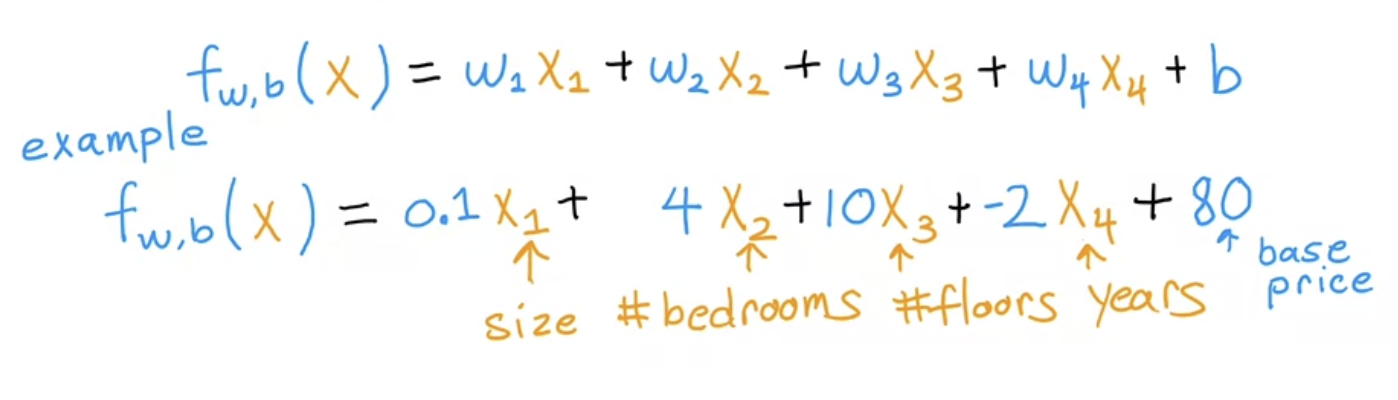 f_{w,b}(x) = w₁x₁ + w₂x₂ + w₃x₃ + w₄x₄ + b
example
f_{w,b}(x) = 0.1x₁ + 4x₂ + 10x₃ + -2x₄ + 80
size #bedrooms #floors years
base
price